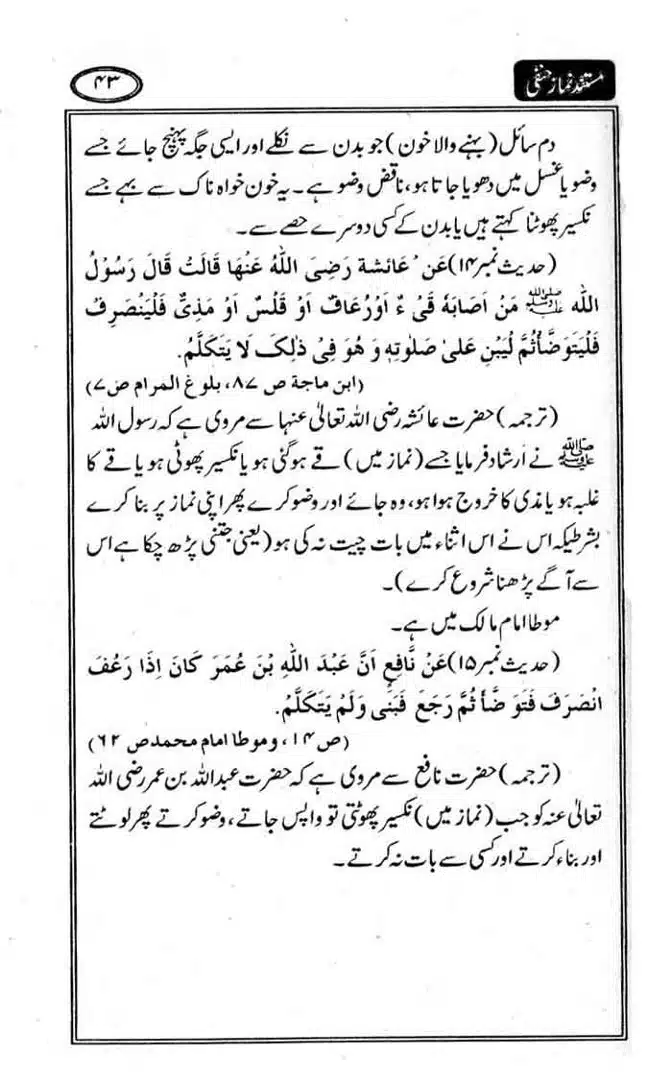 مستند نماز حنفی
۴۳
دم سائل (بہنے والا خون) جو بدن سے نکلے اور ایسی جگہ پہنچ جائے جسے
وضو یا غسل میں دھویا جاتا ہو، ناقض وضو ہے۔ یہ خون خواہ ناک سے بہے جسے
نکسیر پھوٹنا کہتے ہیں یا بدن کے کسی دوسرے حصے سے۔
(حدیث نمبر۱۴) عَن عَائشة رَضِىَ اللهُ عَنهَا قَالَتْ قَالَ رَسُوْلُ
الله ﷺ مَنْ اَصَابَهٗ قَىْ ءٌ اَوْرُعَافٌ اَوْ قَلْسٌ اَوْ مَذِىٌّ فَلْيَنْصَرِفْ
فَلْيَتَوَضَّأْثُمَّ لْيَبْنِ عَلىٰ صَلوٰتِهٖ وَ هُوَ فِىْ ذٰلِکَ لَا يَتَکَلَّمُ.
(ابن ماجة ص ۸۷، بلوغ المرام ص۷)
(ترجمہ) حضرت عائشہ رضی اللہ تعالیٰ عنہا سے مروی ہے کہ رسول اللہ
ﷺ نے ارشاد فرمایا جسے (نماز میں) قے ہوگئی ہو یا نکسیر پھوٹی ہو یا قے کا
غلبہ ہو یا مذی کا خروج ہوا ہو، وہ جائے اور وضو کرے پھر اپنی نماز پر بنا کرے
بشرطیکہ اس نے اس اثناء میں بات چیت نہ کی ہو (یعنی جتنی پڑھ چکا ہے اس
سے آگے پڑھنا شروع کرے)۔
موطا امام مالک میں ہے۔
(حدیث نمبر۱۵) عَنْ نَّافِعٍ اَنَّ عَبْدَ اللهِ بْنَ عُمَرَ کَانَ اِذَا رَعُفَ
انْصَرَفَ فَتَوَ ضَّأَ ثُمَّ رَجَعَ فَبَنٰى وَلَمْ يَتَکَلَّمُ.
(ص ۱۴، و موطا امام محمد ص ۶۲)
(ترجمہ) حضرت نافع سے مروی ہے کہ حضرت عبداللہ بن عمر رضی اللہ
تعالیٰ عنہ کو جب (نماز میں) نکسیر پھوٹتی تو واپس جاتے، وضو کرتے پھر لوٹتے
اور بناء کرتے اور کسی سے بات نہ کرتے۔